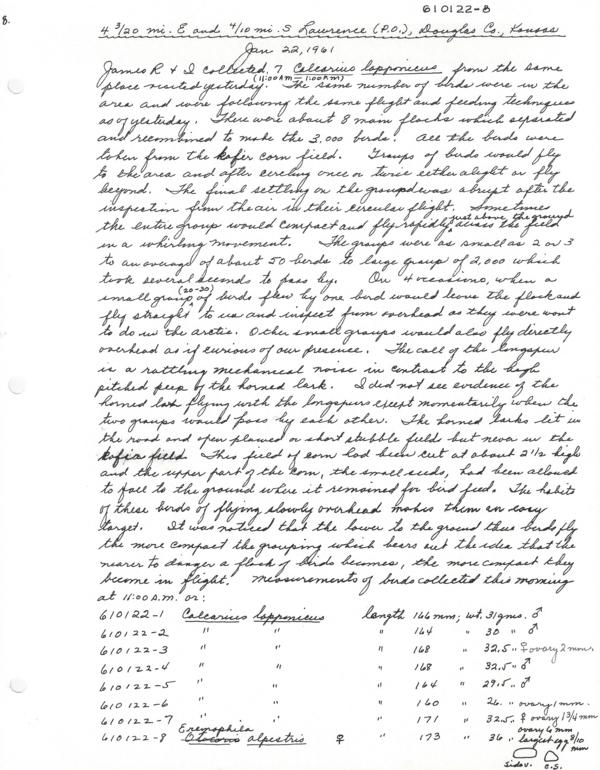 610122-8
8.
4 3/20 mi. E and 4/10 mi. S Lawrence (P.O.), Douglas Co., Kansas
Jan 22, 1961
James R & I collected, 7 Calcarius lapponicus from the same
(11:00 AM - 1:00 P.M)
place visited yesterday. The same number of birds were in the
area and were following the same flight and feeding techniques
as of yesterday. There were about 8 main flocks which separated
and recombined to make the 3,000 birds. All the birds were
taken from the kafir corn field. Groups of birds would fly
to the area and after circling once or twice either alight or fly
beyond. The final settling on the ground was abrupt after the
inspection from the air in their circular flight. Sometimes
the entire group would compact and fly rapidly just above the ground across the field
in a whirling movement. The groups were as small as 2 or 3
to an average of about 50 birds to large group of 2,000 which
took several seconds to pass by. On 4 occasions, when a
small group (20-30) of birds flew by one bird would leave the flock and
fly straight to us and inspect from overhead as they were wont
to do in the arctic. Other small groups would also fly directly
overhead as if curious of our presence. The call of the longspur
is a rattling mechanical noise in contrast to the high
pitched peep of the horned lark. I did not see evidence of the
horned lark flying with the longspurs except momentarily when the
two groups would pass by each other. The horned larks lit in
the road and open plowed or short stubble field but never in the
field. This field of corn had been cut at about 2 1/2 high
and the upper part of the corn, the small seeds, had been allowed
to fall to the ground where it remained for bird feed. The habits
of these birds of flying slowly overhead makes them an easy
target. It was noticed that the lower to the ground these birds fly
the more compact the grouping which bears out the idea that the
nearer to danger a flock of birds becomes, the more compact they
become in flight. Measurements of birds collected this morning
at 11:00 A.M. are:
610122-1 Calcarius lapponicus length 166 mm; wt. 31 gms. ♂
610122-2 " " " 164 " 30 " ♂
610122-3 " " " 168 " 32.5 " ♀ ovary 2 mm.
610122-4 " " " 168 " 32.5 " ♂
610122-5 " " " 164 " 29.5 " ♂
610122-6 " " " 160 " 26. " ovary 1 mm.
610122-7 " " " 171 " 32.5. ♀ ovary 1 3/4 mm
610122-8 Eremophila Otocoris alpestris ♀ " 173 " 36 " ovary 6 mm largest egg 8/10 mm